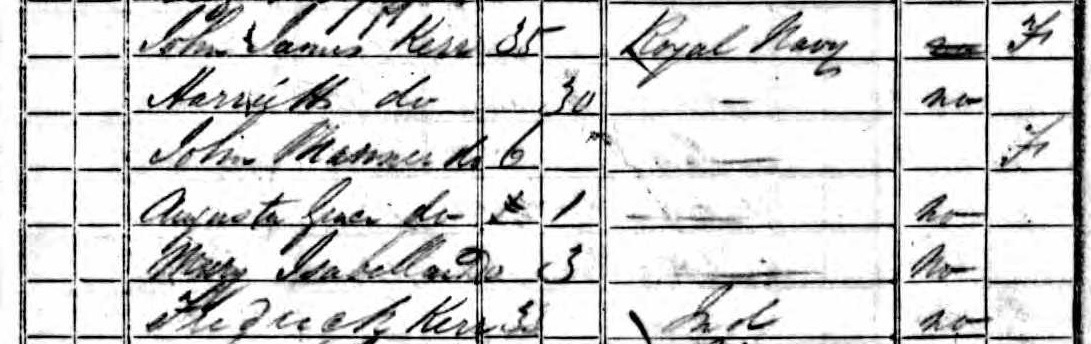 John James Kerr 35 Royal Navy F
Harriett do 30 — no
John Manner do 6 — F
Augusta Grace do 1 — no
Mary Isabella Do 3 — No
Fredrick Kerr Ind no